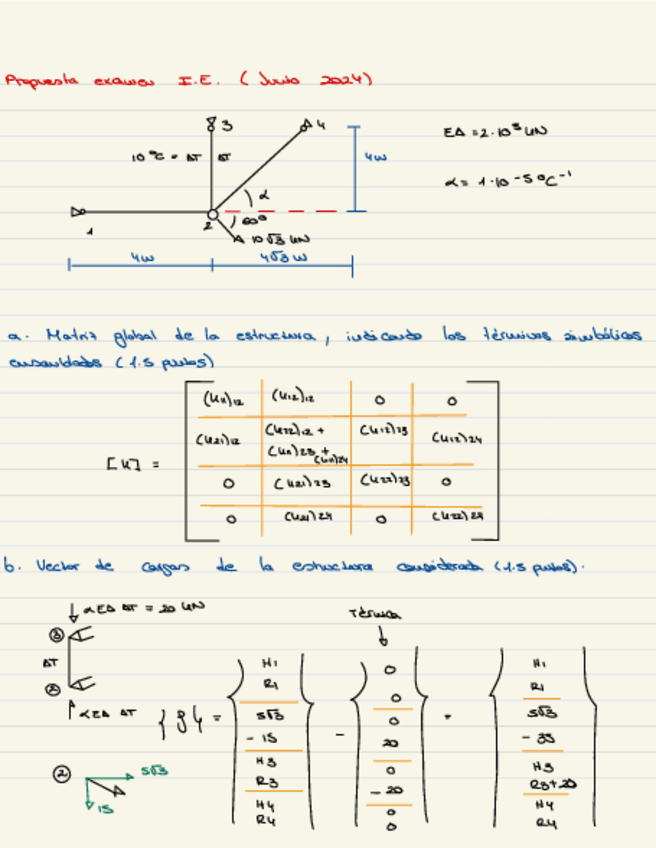 Propuesta examen I.E. (Junio 2024)
3
4
EA = 2·10⁵ kN
10 ºC = ΔT
ΔT
4m
α = 1·10⁻⁵ ºC⁻¹
α
1
2
60º
10√3 kN
4m
4√3 m
a. Matriz global de la estructura, indicando los términos simbólicos
ensamblados (1.5 puntos)
(K11)12 (K12)12 0 0
(K21)12 (K22)12 + (K11)23 + (K11)24 (K12)23 (K12)24
[K] =
0 (K21)23 (K22)23 0
0 (K21)24 0 (K22)24
b. Vector de cargas de la estructura considerada (1.5 puntos).
αEA ΔT = 20 kN
Térmica
3
ΔT
2
αEA ΔT
{f} =
H1 0 H1
R1 0 R1
5√3 - 0 = 5√3
-15 20 -35
H3 0 H3
R3 -20 R3+20
H4 0 H4
R4 0 R4
2
5√3
15